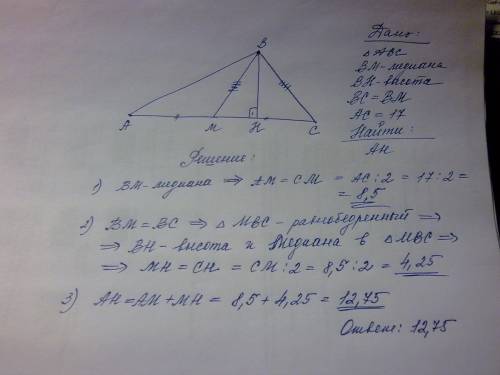 Дано:
△ABC
BM-медиана
BH-высота
BC=BM
AC=17
Найти:
AH
B
A
M
H
C
Решение:
1) BM-медиана ⇒ AM=CM = AC:2 = 17:2=
= 8,5
2) BM=BC ⇒ △MBC-равнобедренный ⇒
⇒ BH-высота и медиана в △MBC ⇒
⇒ MH=CH = CM:2= 8,5:2= 4,25
3) AH=AM+MH= 8,5+4,25= 12,75
Ответ: 12,75